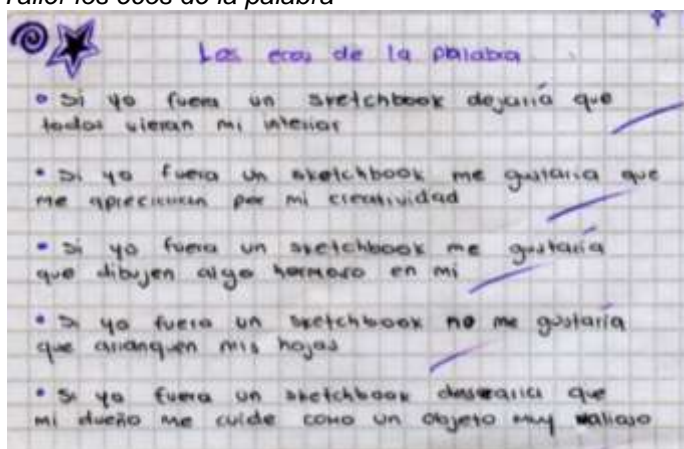 Taller los ecos de la palabra
Los ecos de la palabra
• Si yo fuera un sketchbook dejaría que
todos vieran mi interior
• Si yo fuera un sketchbook me gustaria que
me apreciaran por mi creatividad
• Si yo fuera un sketchbook me gustaría
que dibujen algo hermoso en mi
• Si yo fuera un sketchbook no me gustaría
que arranquen mis hojas
• Si yo fuera un sketchbook desearia que
mi dueño me cuide como un objeto muy valioso